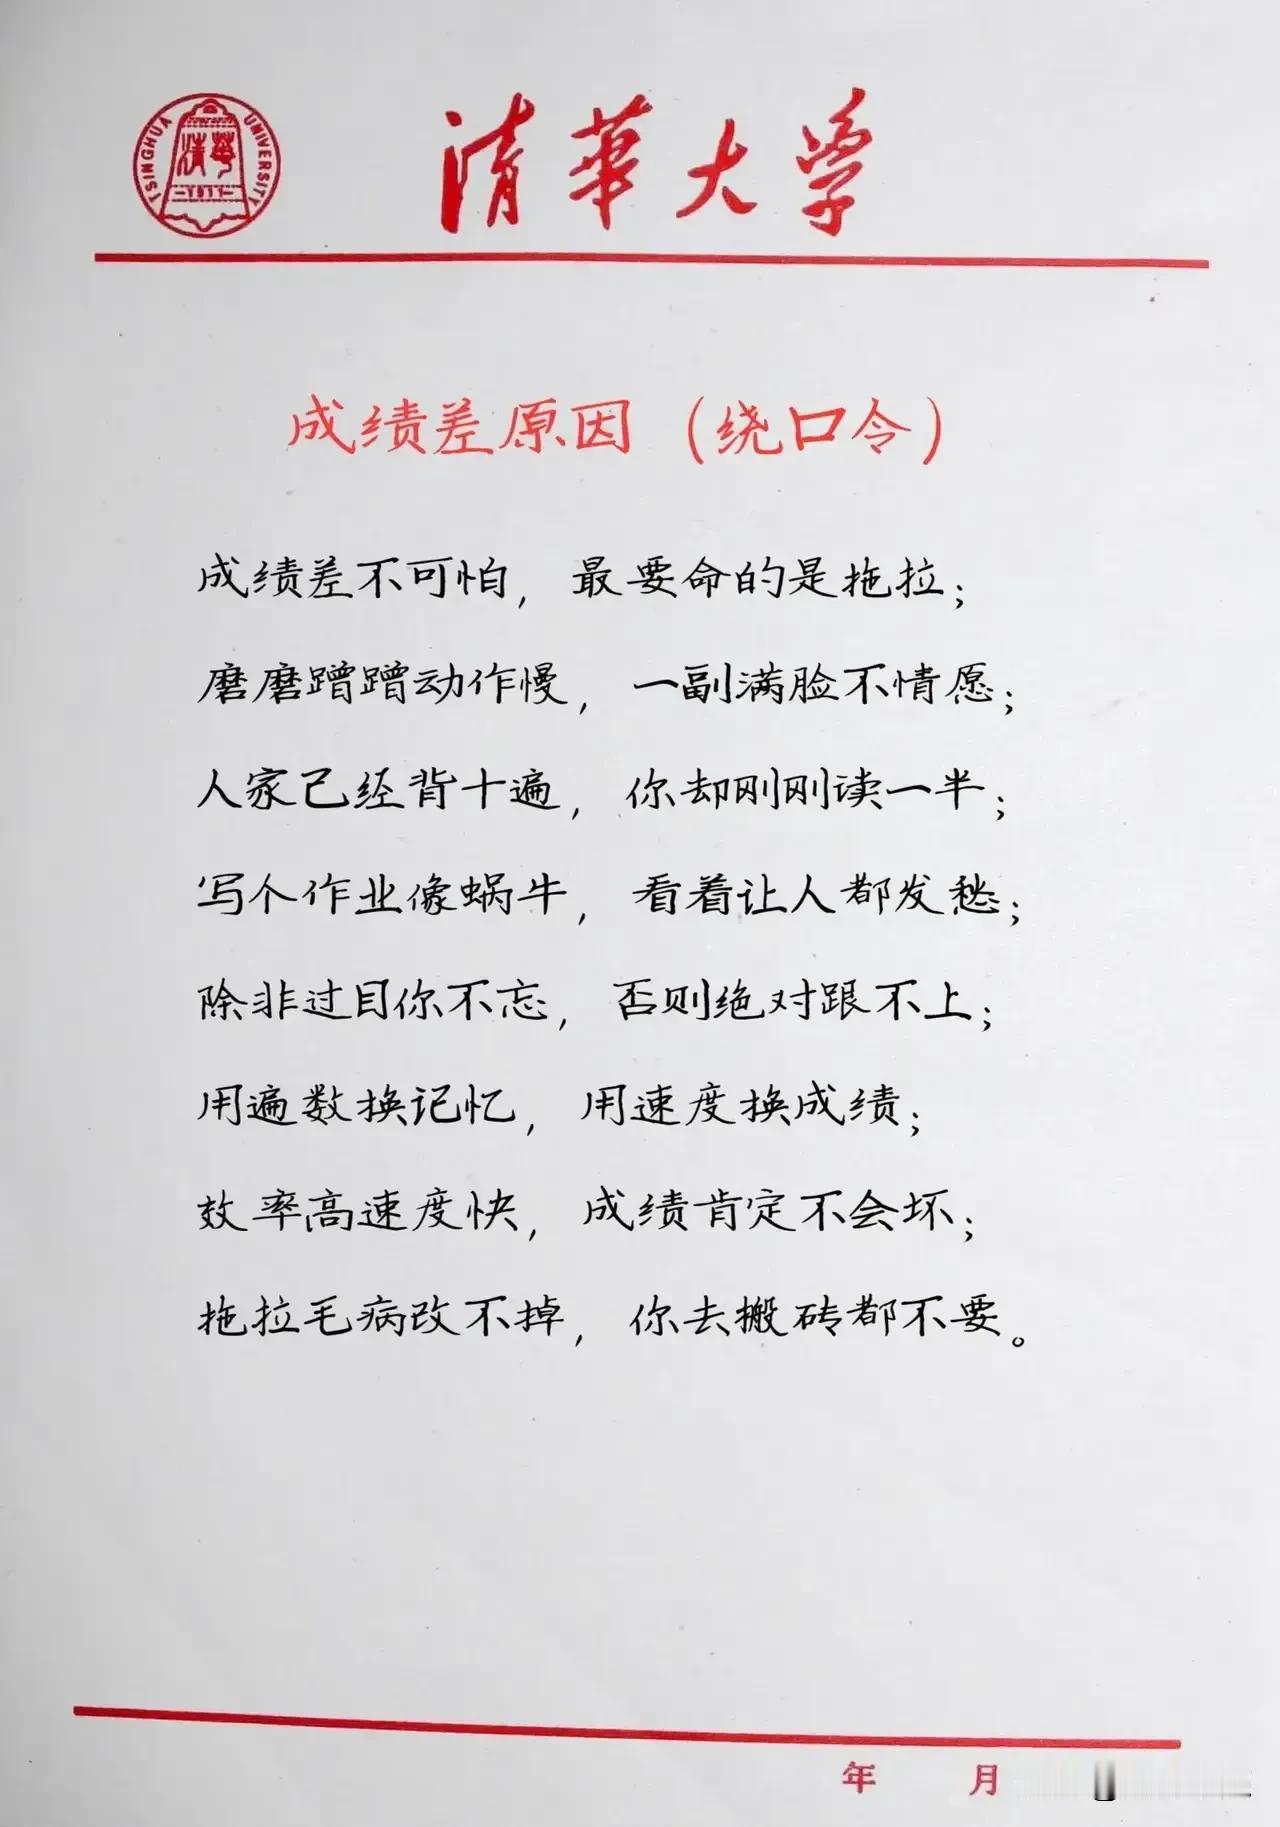 TSINGHUA UNIVERSITY
清華
-1911-
清華大学
成绩差原因（绕口令）
成绩差不可怕，最要命的是拖拉；
磨磨蹭蹭动作慢，一副满脸不情愿；
人家已经背十遍，你却刚刚读一半；
写个作业像蜗牛，看着让人都发愁；
除非过目你不忘，否则绝对跟不上；
用遍数换记忆，用速度换成绩；
效率高速度快，成绩肯定不会坏；
拖拉毛病改不掉，你去搬砖都不要。
年 月